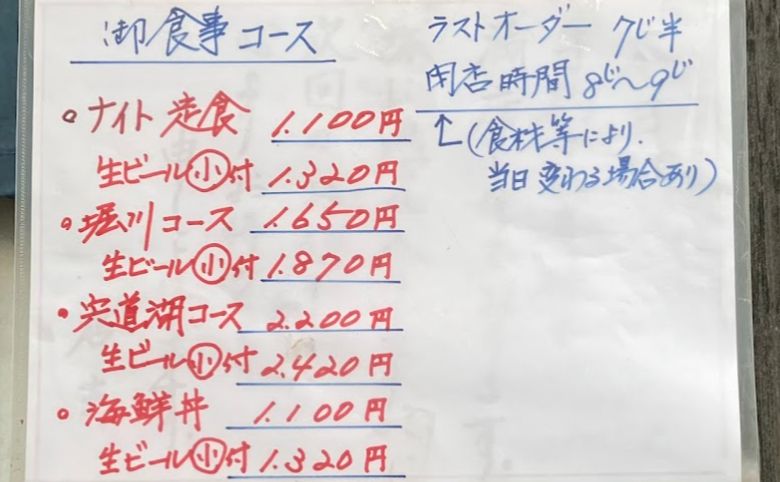 御食事コース
ナイト定食 1.100円
生ビール小付 1.320円
堀川コース 1.650円
生ビール小付 1.870円
宍道湖コース 2.200円
生ビール小付 2.420円
海鮮丼 1.100円
生ビール小付 1.320円
ラストオーダー 7じ半
閉店時間 8じ〜9じ
↑(食材等により.
当日変わる場合あり)